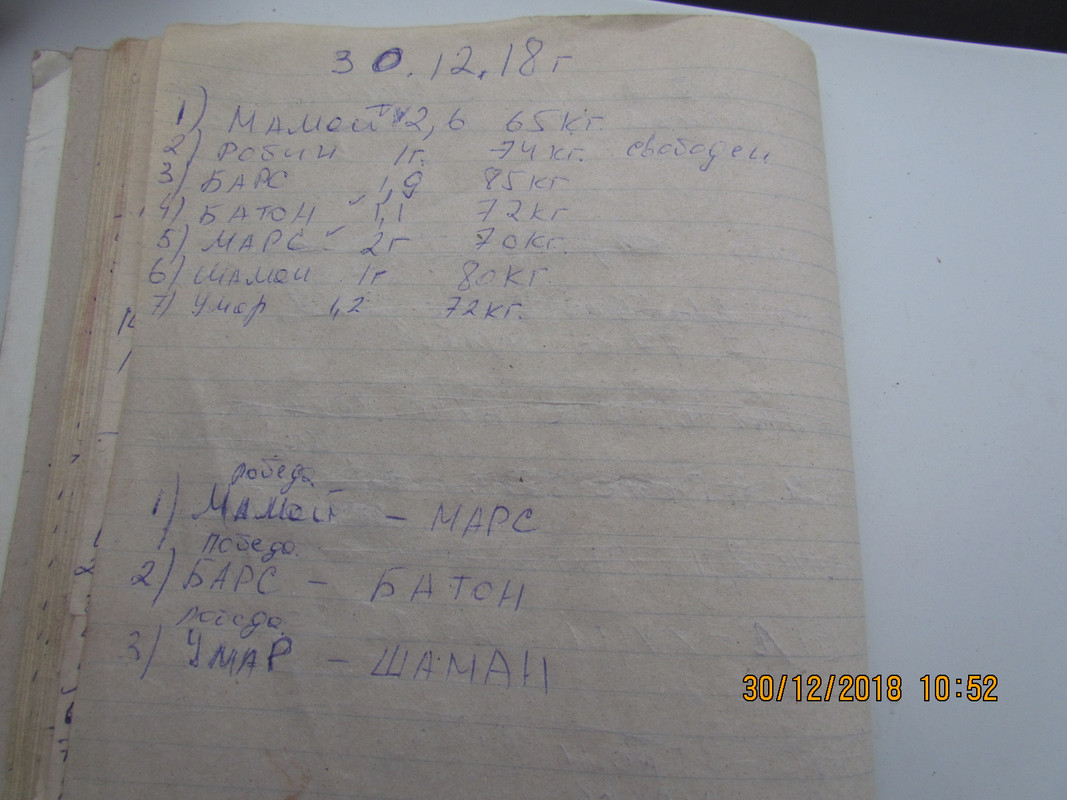 30.12.18г
1) Мамай 2,6 65кг.
2) РОБИН 1г. 74кг. свободен
3) БАРС 1,9 85кг
4) БАТОН 1,1 72кг
5) МАРС 2г 70кг.
6) Шаман 1г 80кг.
7) Умар 1,2 72кг.
победа
1) Мамай – МАРС
победа.
2) БАРС – БАТОН
победа.
3) УМАР – ШАМАН
30/12/2018 10:52